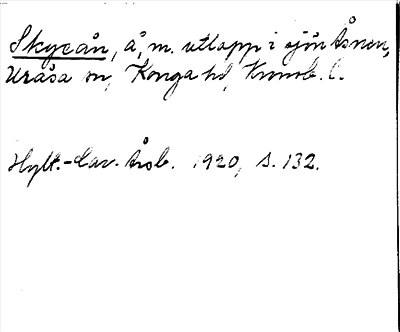 Skyeån, å, m. utlopp i sjön Åsnen,
Uråsa sn, Konga hd, Kronob. l.
Hylt.-Cav. Årsb. 1920, s. 132.